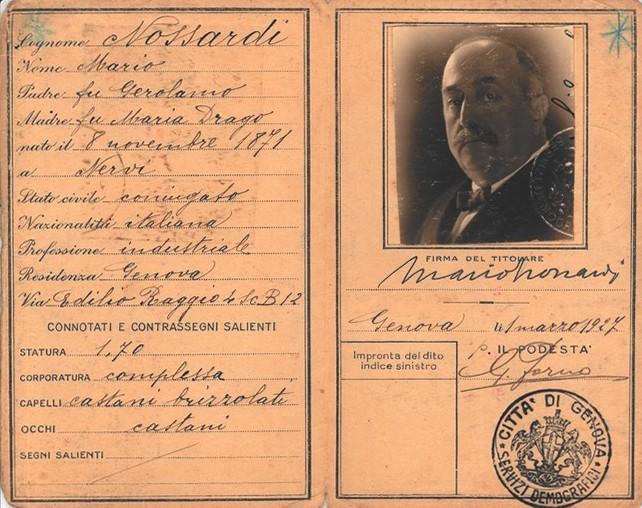 Cognome Nossardi
Nome Mario
Padre fu Gerolamo
Madre fu Maria Drago
nato il 8 novembre 1871
a Nervi
Stato civile coniugato
Nazionalità italiana
Professione industriale
Residenza Genova
Via Edilio Raggio 4 Sc. B 12
CONNOTATI E CONTRASSEGNI SALIENTI
STATURA 1,70
CORPORATURA complessa
CAPELLI castani brizzolati
OCCHI castani
SEGNI SALIENTI
FIRMA DEL TITOLARE
Mario Nossardi
Genova marzo 1927
P. IL PODESTA'
G.
Impronta del dito
indice sinistro
CITTA' DI GENOVA
SERVIZI DEMOGRAFICI